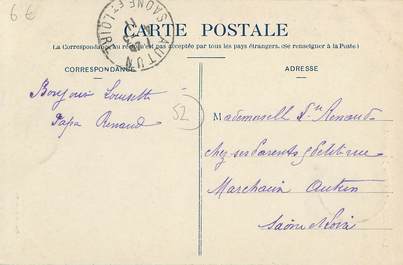 6 €
CARTE POSTALE
(La Correspondance au recto n'est pas acceptée par tous les pays étrangers. (Se renseigner à la Poste)
CORRESPONDANCE
ADRESSE
AUTUN
SAONE-ET-LOIRE
52
Bonjour Louisette
Papa Renaud
Mademoiselle Renaud
chez ses Parents petite rue
Marchaux Autun
Saône et Loire